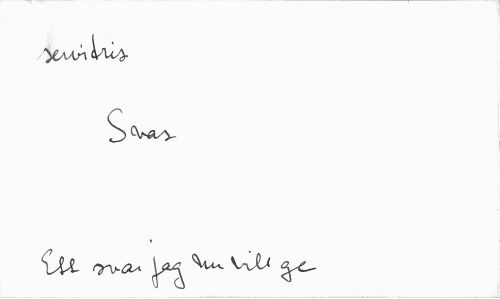 servitris
Svar
Ett svar jag nu vill ge